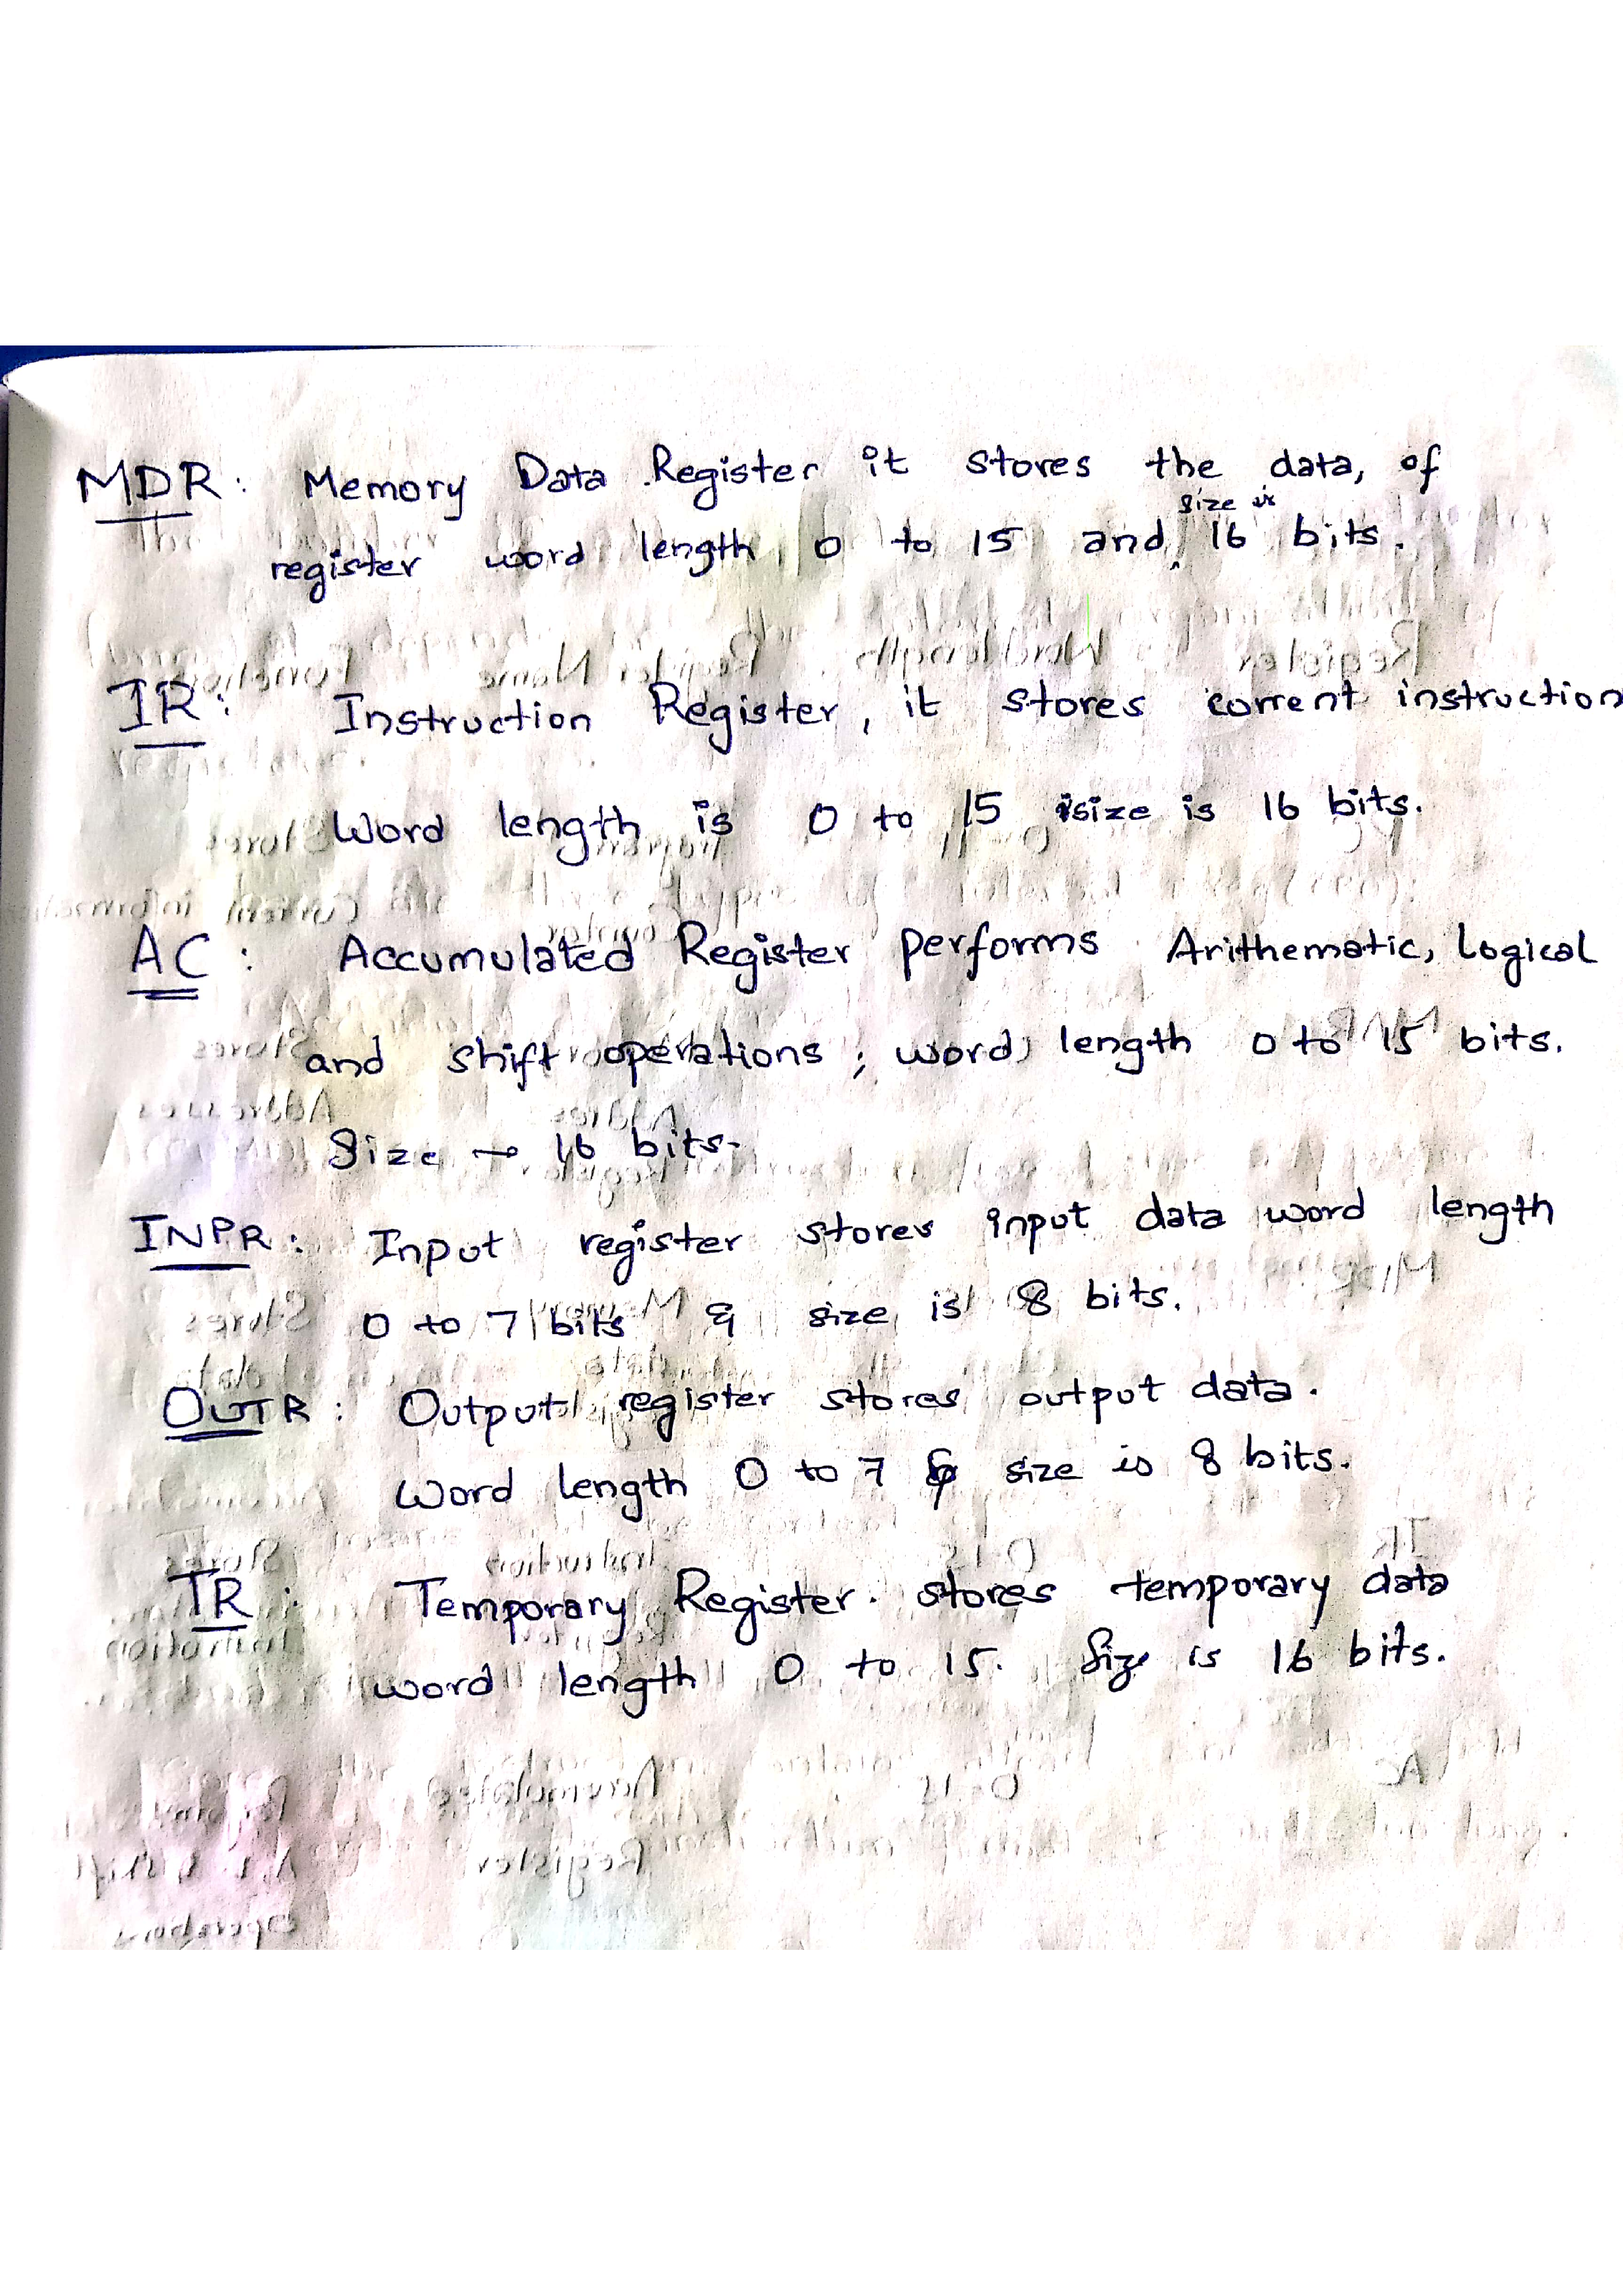 MDR: Memory Data Register it stores the data, of
size is
register word length 0 to 15 and 16 bits.
IR: Instruction Register, it stores corrent instruction
Word length is 0 to 15 size is 16 bits.
AC: Accumulated Register performs Arithematic, Logical
and shift operations; word length 0 to 15 bits.
Size → 16 bits.
INPR: Input register stores input data word length
0 to 7 bits & size is 8 bits.
OUTR: Output register stores output data.
Word length 0 to 7 & size is 8 bits.
TR: Temporary Register stores temporary data
word length 0 to 15. Size is 16 bits.